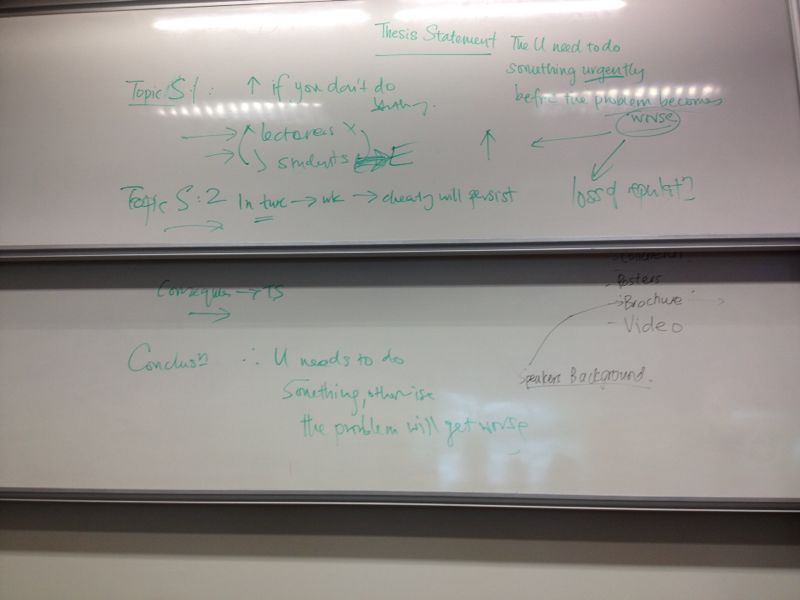 Thesis Statement
The U need to do
something urgently
befre the problem becomes
worse
Topic S:1: ↑ if you don't do
→ ↑ lecturers X
→ students E
↑
loss of
Topic S:2 In twc → wk → will persist
→ TS
Conclusn ∴ U needs to do
Something, otherise
the problem will get worse
- Posters
- Brochure →
- Video
Speakers Background.